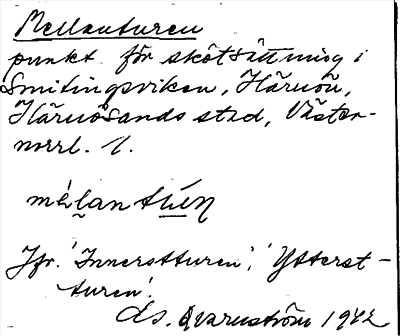 Mellanturen
punkt för skötsättning i
Smitingsviken, Härnön,
Härnösands stad, Väster-
norrl. l.
mèlantu̇́n
Jfr. 'Innerstturen', 'Ytterst-
turen'.
Ls. Qvarnström 1942